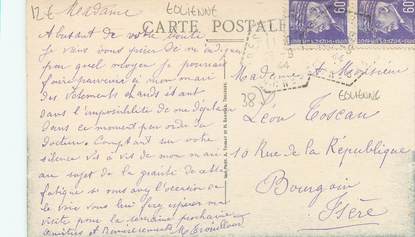 12€
EOLIENNE
CARTE POSTALE
Madame
Abusant de votre bonté
je vous prier de m'indiquer
par quel moyen je pourrais
faire parvenir à mon mari
des vêtements chauds étant
dans l'impossibilité de me déplacer
dans ce moment par ordre du
docteur. Comptant sur votre
silence vis à vis de mon mari
au sujet de la gravité de cette
fatigue si vous avez l'occasion
de le voir vous lui ferez espérer ma
visite pour la semaine prochaine
Amitiés et Remerciements
60
60
38
EOLIENNE
Madame et Monsieur
Léon Toscan
10 Rue de la République
Bourgoin
Isère